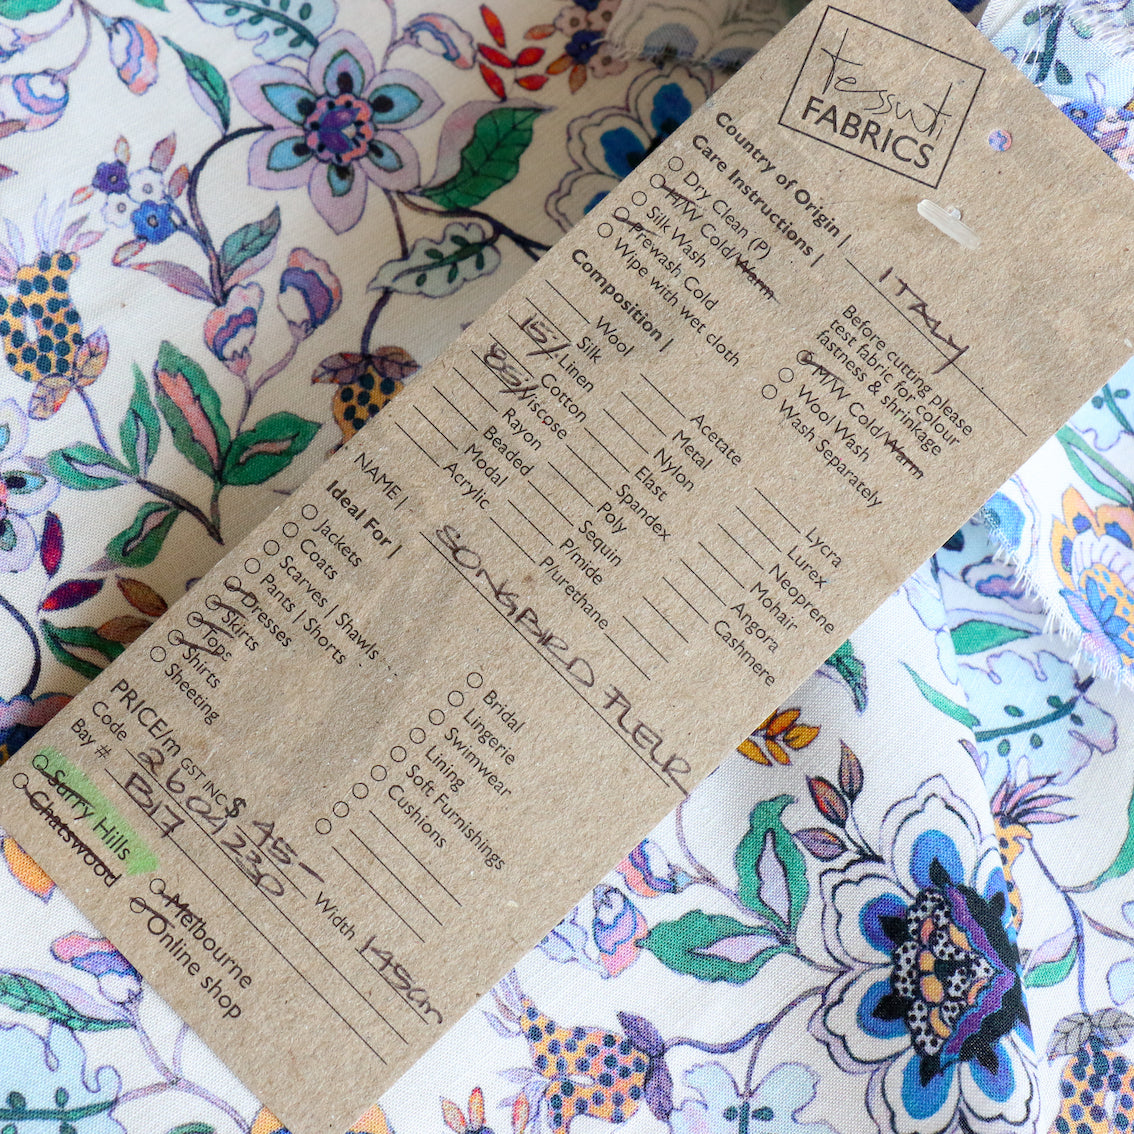 tessuti
FABRICS
Country of Origin | ITALY
Care Instructions |
Dry Clean (P)
H/W Cold/Warm
Silk Wash
Prewash Cold
Wipe with wet cloth
Before cutting please
test fabric for colour
fastness & shrinkage
M/W Cold/Warm
Wool Wash
Wash Separately
Composition |
Wool
Silk
15% Linen
Cotton
85% Viscose
Rayon
Beaded
Modal
Acrylic
Acetate
Metal
Nylon
Elast
Spandex
Poly
Sequin
P/mide
P/urethane
Lycra
Lurex
Neoprene
Mohair
Angora
Cashmere
NAME | SONGBIRD FLEUR
Ideal For |
Jackets
Coats
Scarves | Shawls
Pants | Shorts
Dresses
Skirts
Tops
Shirts
Sheeting
Bridal
Lingerie
Swimwear
Lining
Soft Furnishings
Cushions
PRICE/m GST INC $ 45- Width 145cm
Code 2604230
Bay # B17
Surry Hills
Chatswood
Melbourne
Online shop